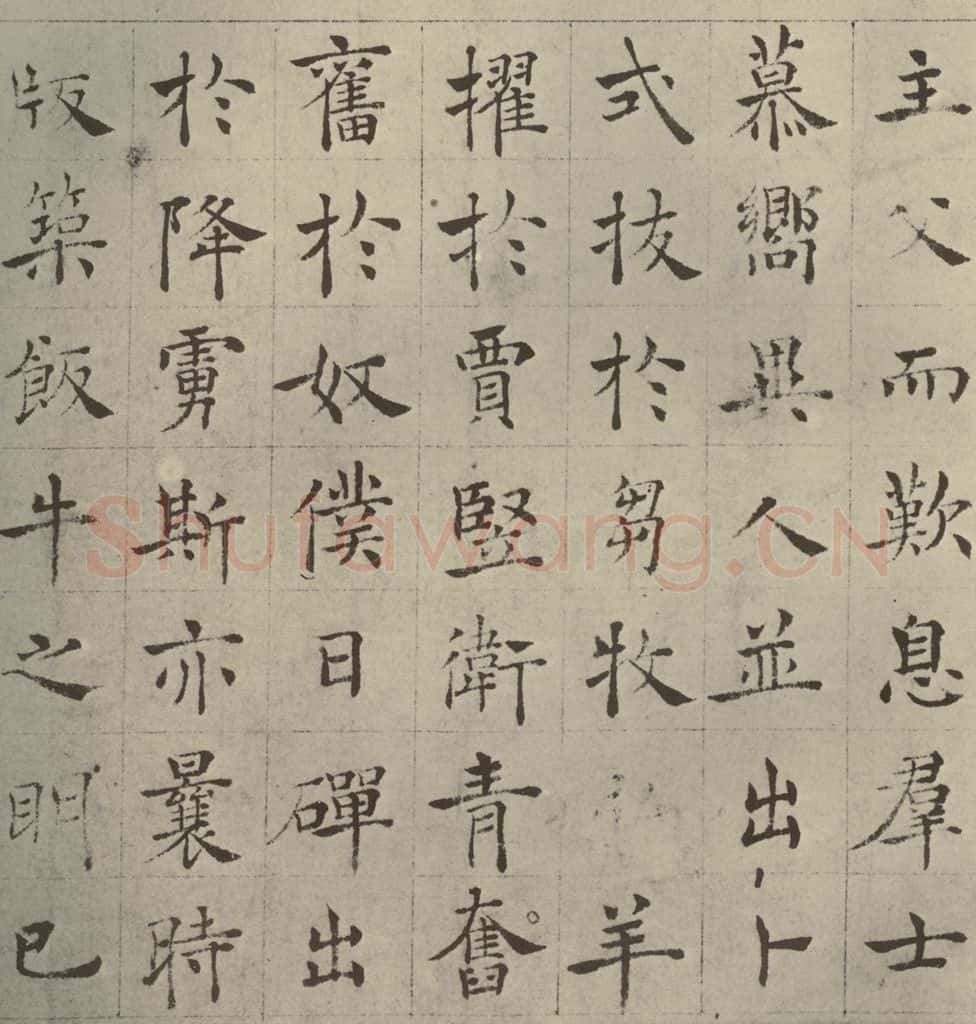 主父而歎息羣士
慕嚮異人並出卜
式拔於芻牧羊
擢於賈豎衛青奮
奮於奴僕日磾出
於降虜斯亦曩時
版築飯牛之明已
Shufawang.CN